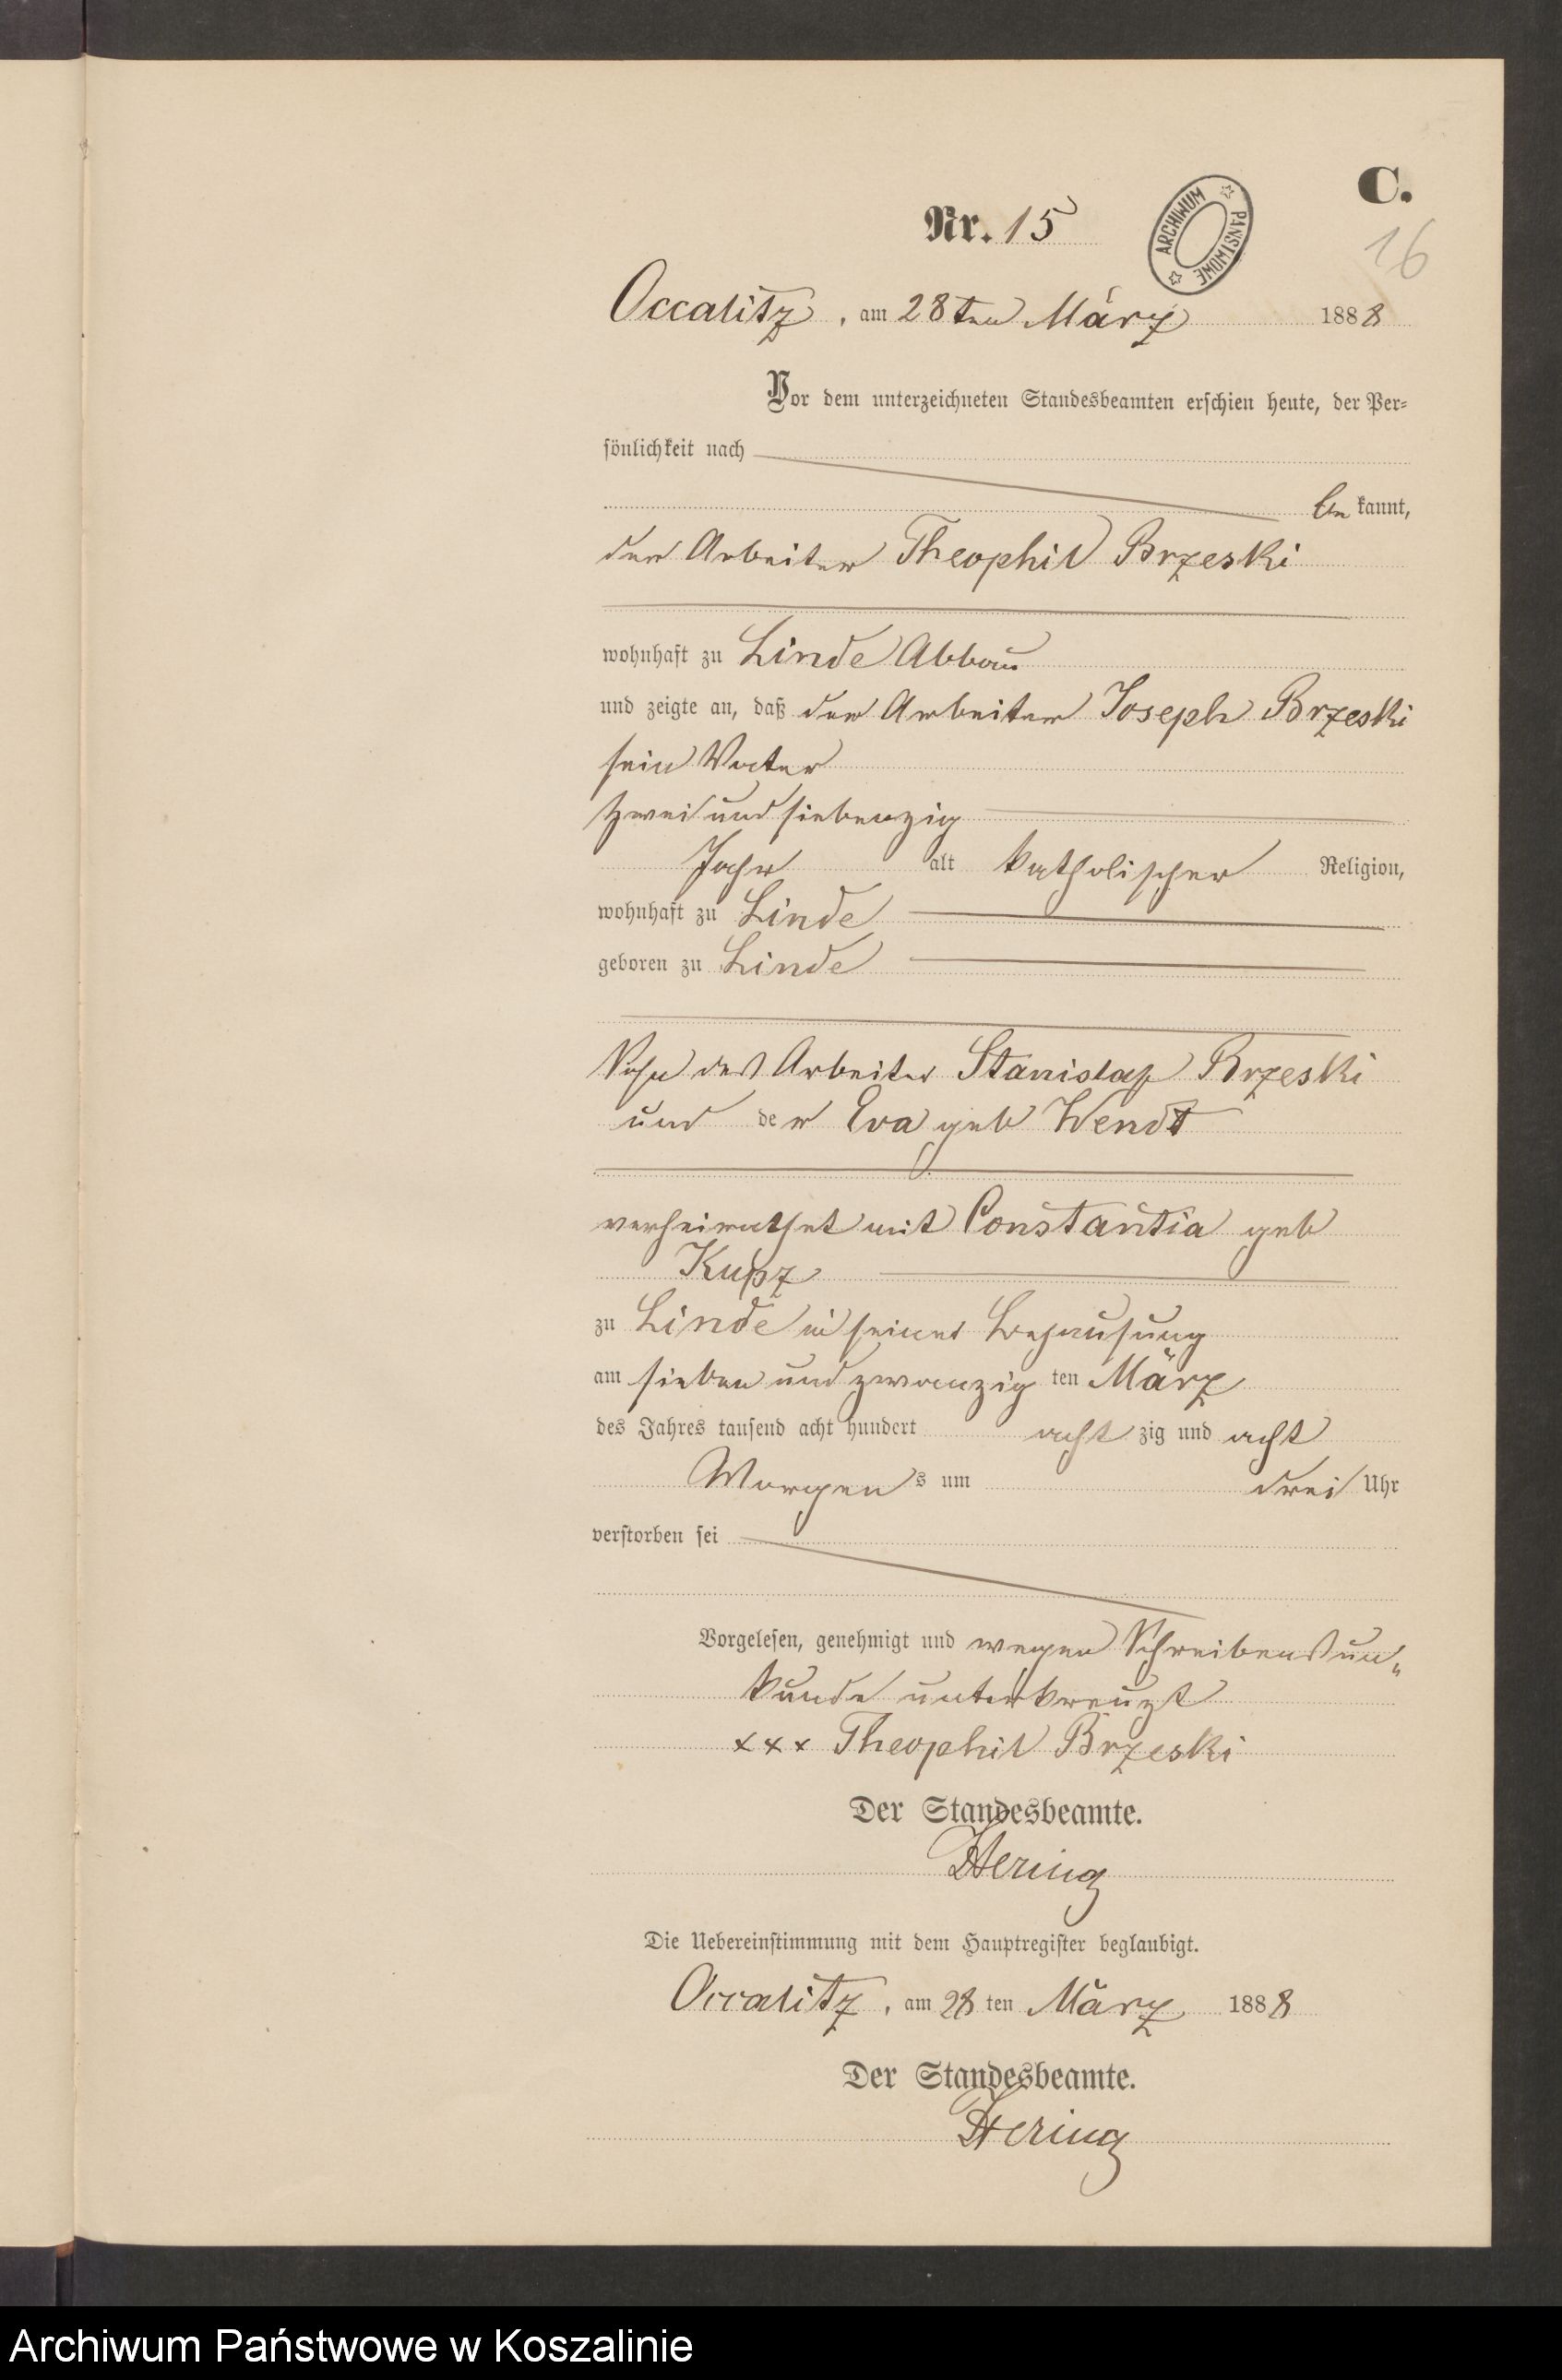 C.
Nr. 15
ARCHIWUM PAŃSTWOWE
16
Occalitz, am 28ten März 1888
Vor dem unterzeichneten Standesbeamten erschien heute, der Per-
sönlichkeit nach
bekannt,
der Arbeiter Theophil Brzeski
wohnhaft zu Linde Abbau
und zeigte an, daß der Arbeiter Joseph Brzeski
sein Vater
zwei und siebenzig
Jahr alt katholischer Religion,
wohnhaft zu Linde
geboren zu Linde
Sohn des Arbeiter Stanislaß Brzeski
und der Eva geb Wendt
verheirathet mit Constantia geb
Kupz
zu Linde in seiner Behausung
am sieben und zwanzig ten März
des Jahres tausend acht hundert acht zig und acht
Morgens um drei Uhr
verstorben sei
Vorgelesen, genehmigt und wegen Schreibensun"
kunde unterkreuzt
xxx Theophil Brzeski
Der Standesbeamte.
Hering
Die Uebereinstimmung mit dem Hauptregister beglaubigt.
Occalitz, am 28 ten März 1888
Der Standesbeamte.
Hering
Archiwum Państwowe w Koszalinie